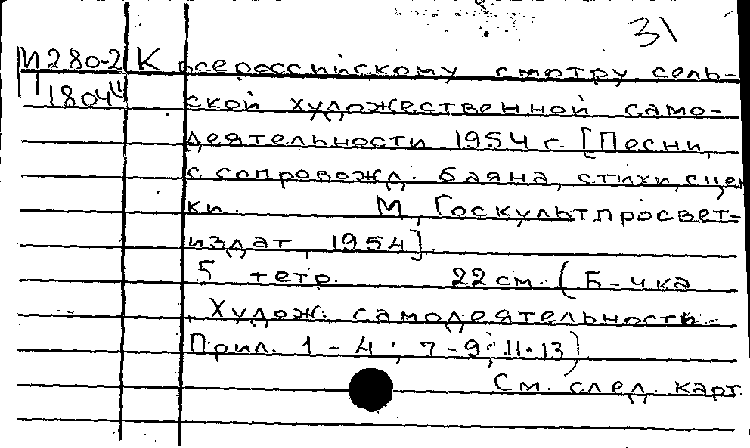 31
И280-2 К всероссийскому смотру сель-
1804 ской художественной само-
деятельности 1954 г. [Песни,
с сопровожд. баяна, стихи, сцен
ки. М, Госкультпросвет-
издат, 1954].
5 тетр. 22 см. (Б-чка
Худож. самодеятельность.
Прил. 1-4; 7-9; 11-13)
См. след. карт.